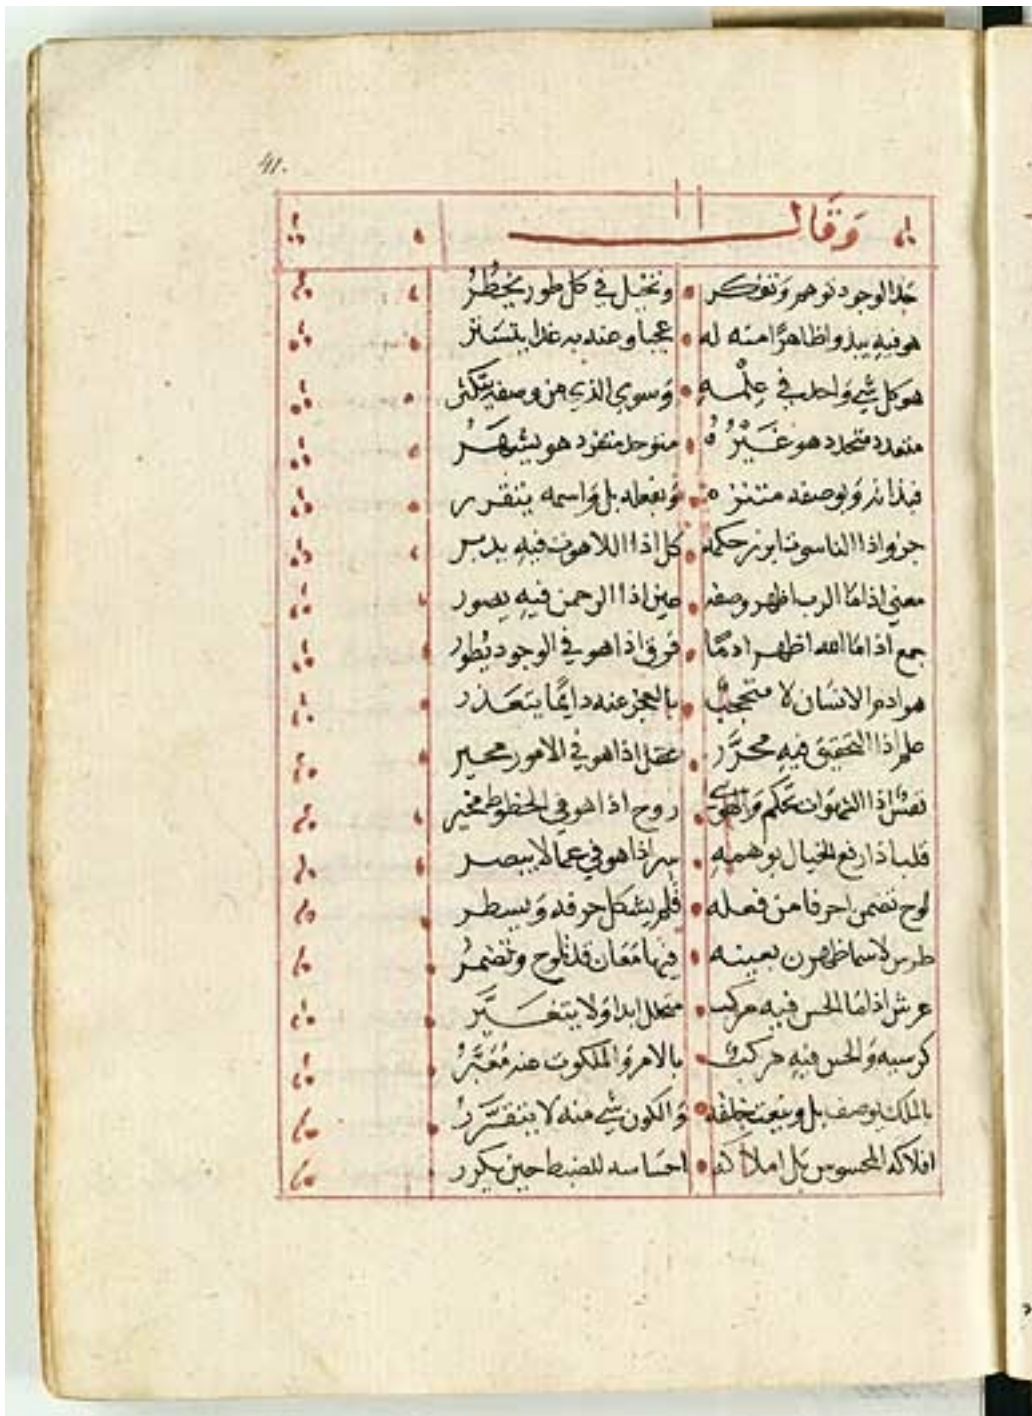 41.
وَقَال
جلد الوجود توهم وَتفكر وتخيل في كل طور يخطُرُ
هو فيهِ يبدو اظاهرًا منه له عجبا وعنه به غدا يتستر
هو كل شيء وَاحد في عِلْمهِ وَسوى الذي من وصفه يتكثر
متعدد متجدد هو غَيْرُهُ متوحد متفرد هو يشهرُ
فبذاته وَبوصفه متنزه وَبفعله بل وَاسمه يتقرر
جزو اذا الناسوت ابرز حكمه كل اذا اللاهوت فيهِ يدبر
معني اذا ما الرب اظهر وصفه حين اذا الرحمن فيهِ يصور
جمع اذا ما الله اظهر ادمًا فرق اذا هو في الوجود يُطور
هو ادم الانسَان لا متحجبٌ بالعجز عنه دايمًا يتعذر
علم اذا التحقيق فيهِ محرَّر عقل اذا هو في الامور محير
نفسٌ اذا الشهوَات تحكم وَالهوى روح اذا هو في الحظوظ مخير
قلب اذا رفع الخيال بوهمهِ سر اذا هو في عما لا يبصر
لوح تضمن احرفا من فعله قلم يشكل حرفه وَيسطر
طرس لاسما ظهرن بعينه فيها مَعَان قد تلوح وتضمرُ
عرش اذا ما الحس فيه مركب ابدا وَلا يتغيَّر
كرسيه وَالحس فيهِ مركبٌ بالامر وَالملكوت عنه مُعَبَّرُ
بالملك يوصف بل وينعت خلفه وَالكون شيء منه لا يتقرَّرُ
افلاكه المحسوس بل املاكه احسَاسه للضبط حين يكرر